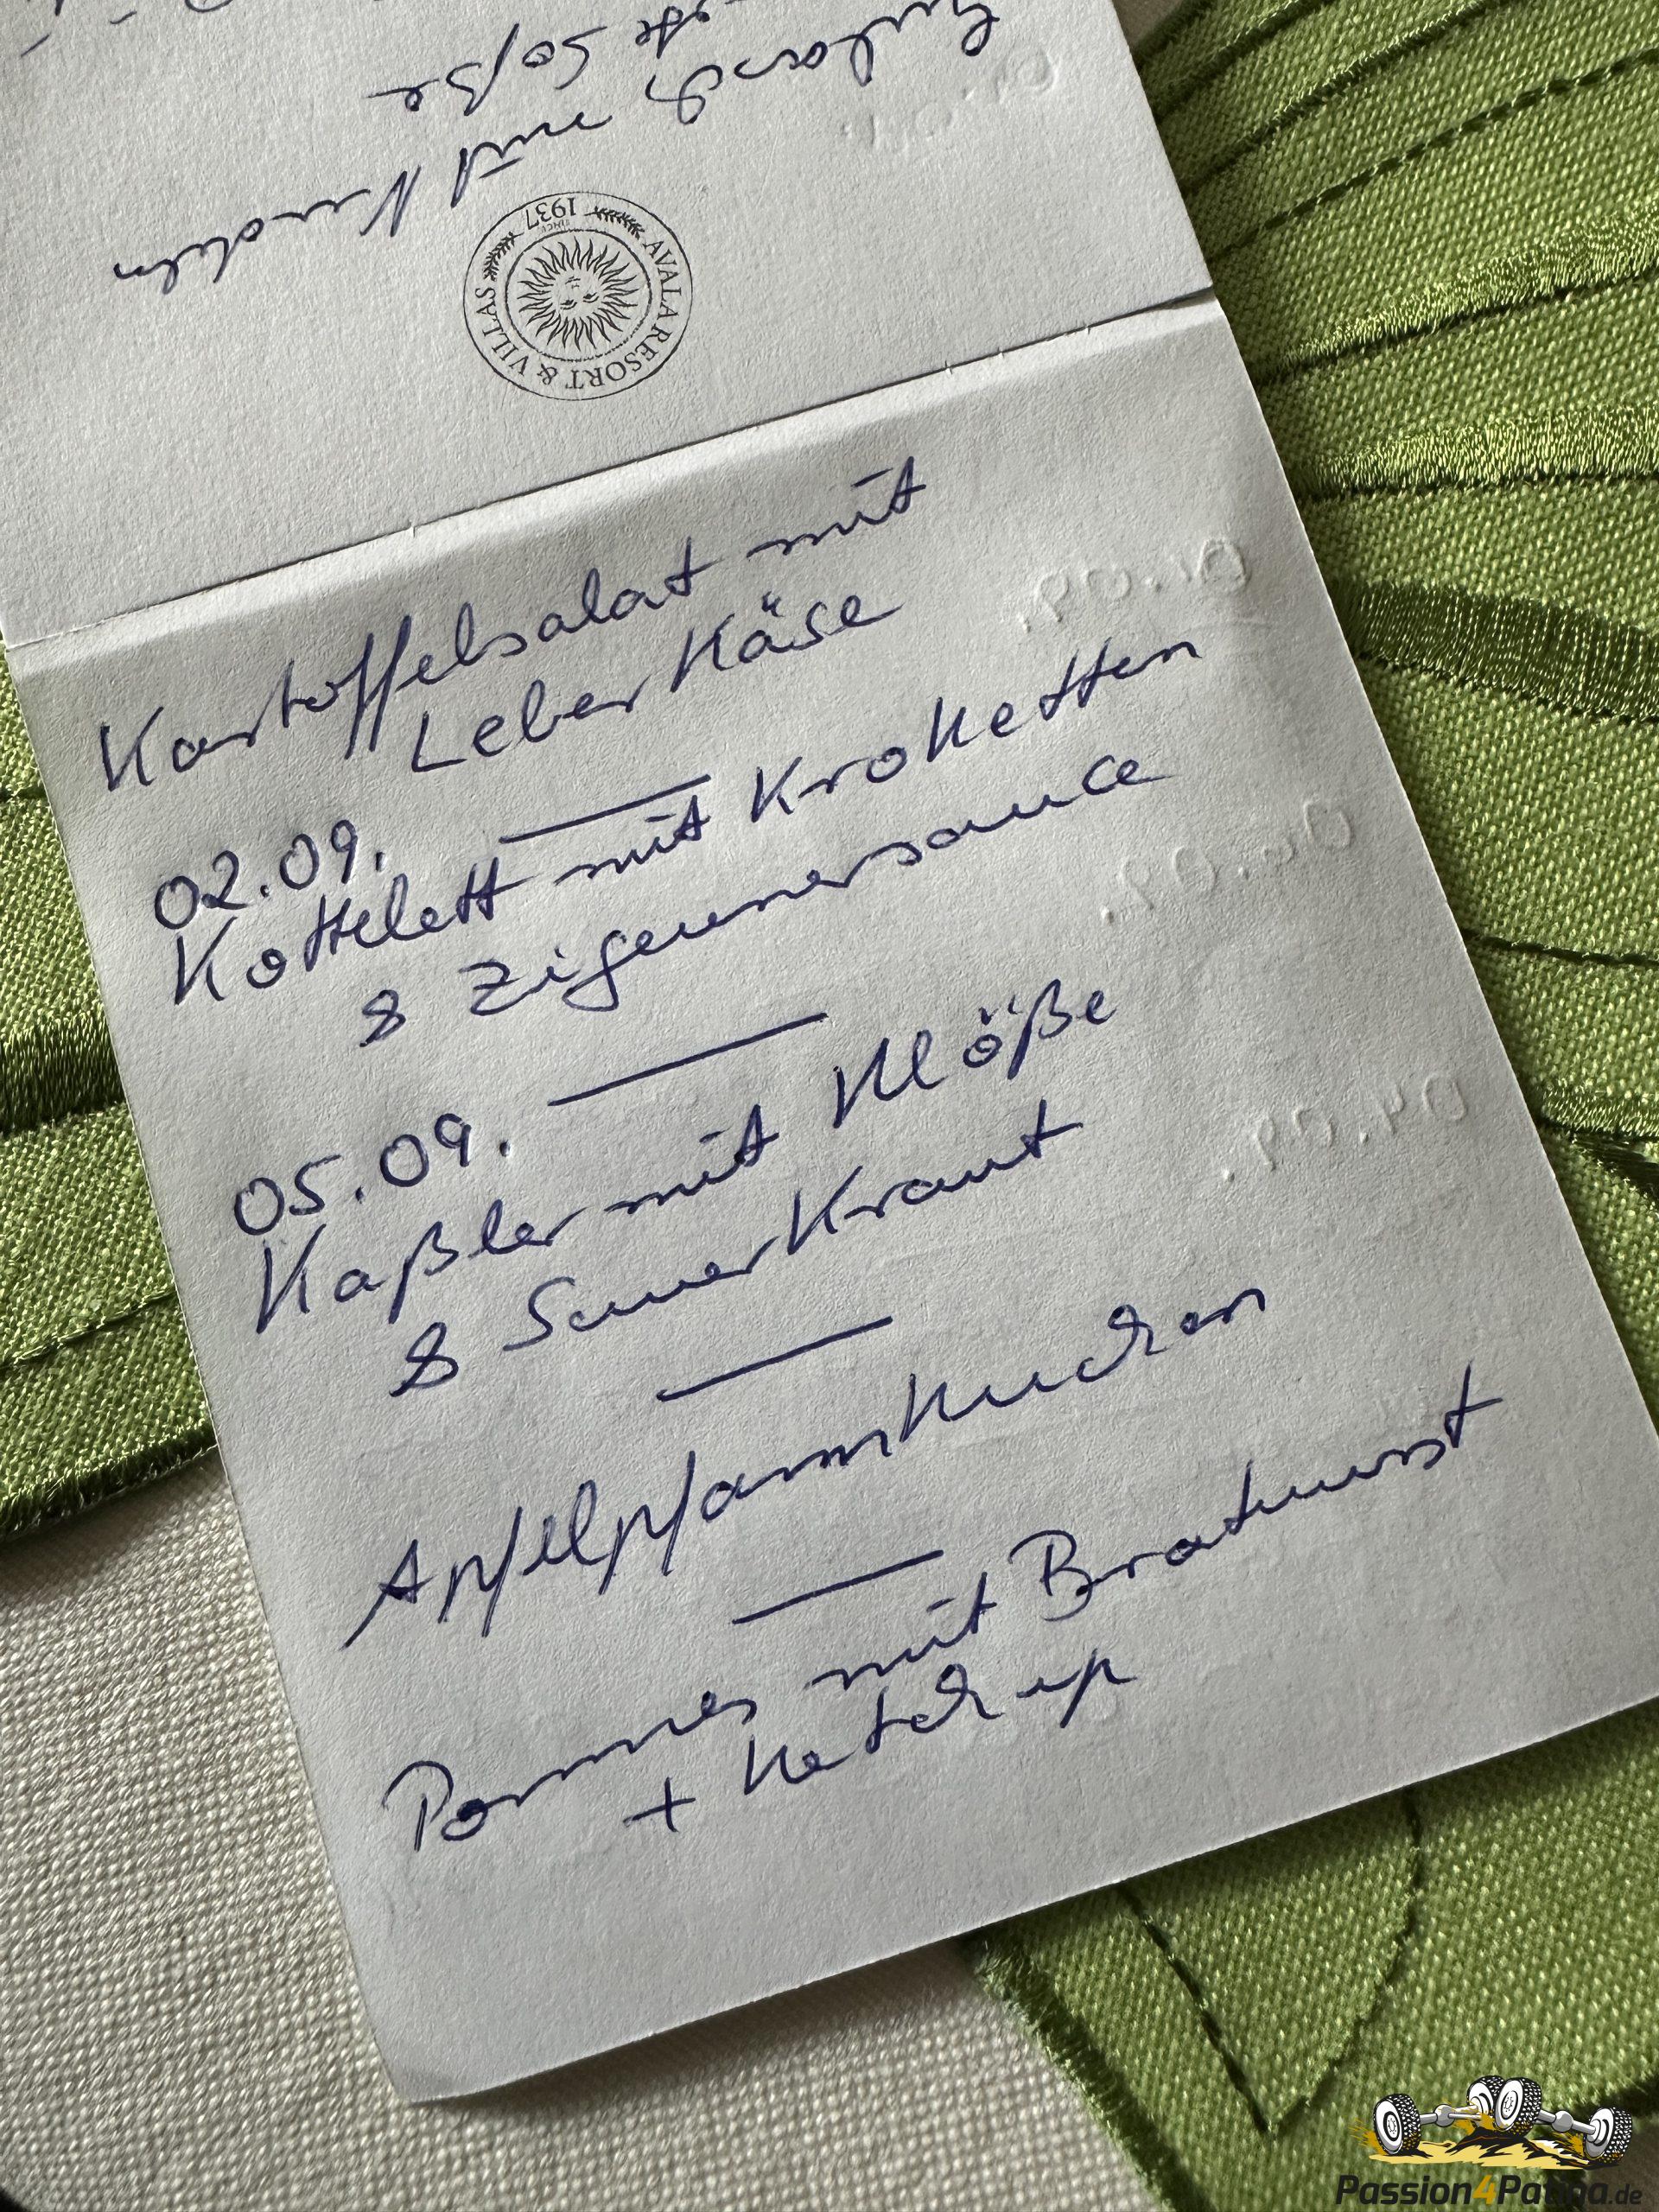 Gulasch mit Nudeln
Soße
SINCE
1937
AVALA RESORT & VILLAS
Kartoffelsalat mit
LeberKäse
02.09.
Kottelett mit Kroketten
& Zigeunersauce
05.09.
Kaßler mit Klöße
& SauerKraut
Apfelpfannkuchen
Pommes mit Bratwurst
+ Ketchup
Passion4Patina.de